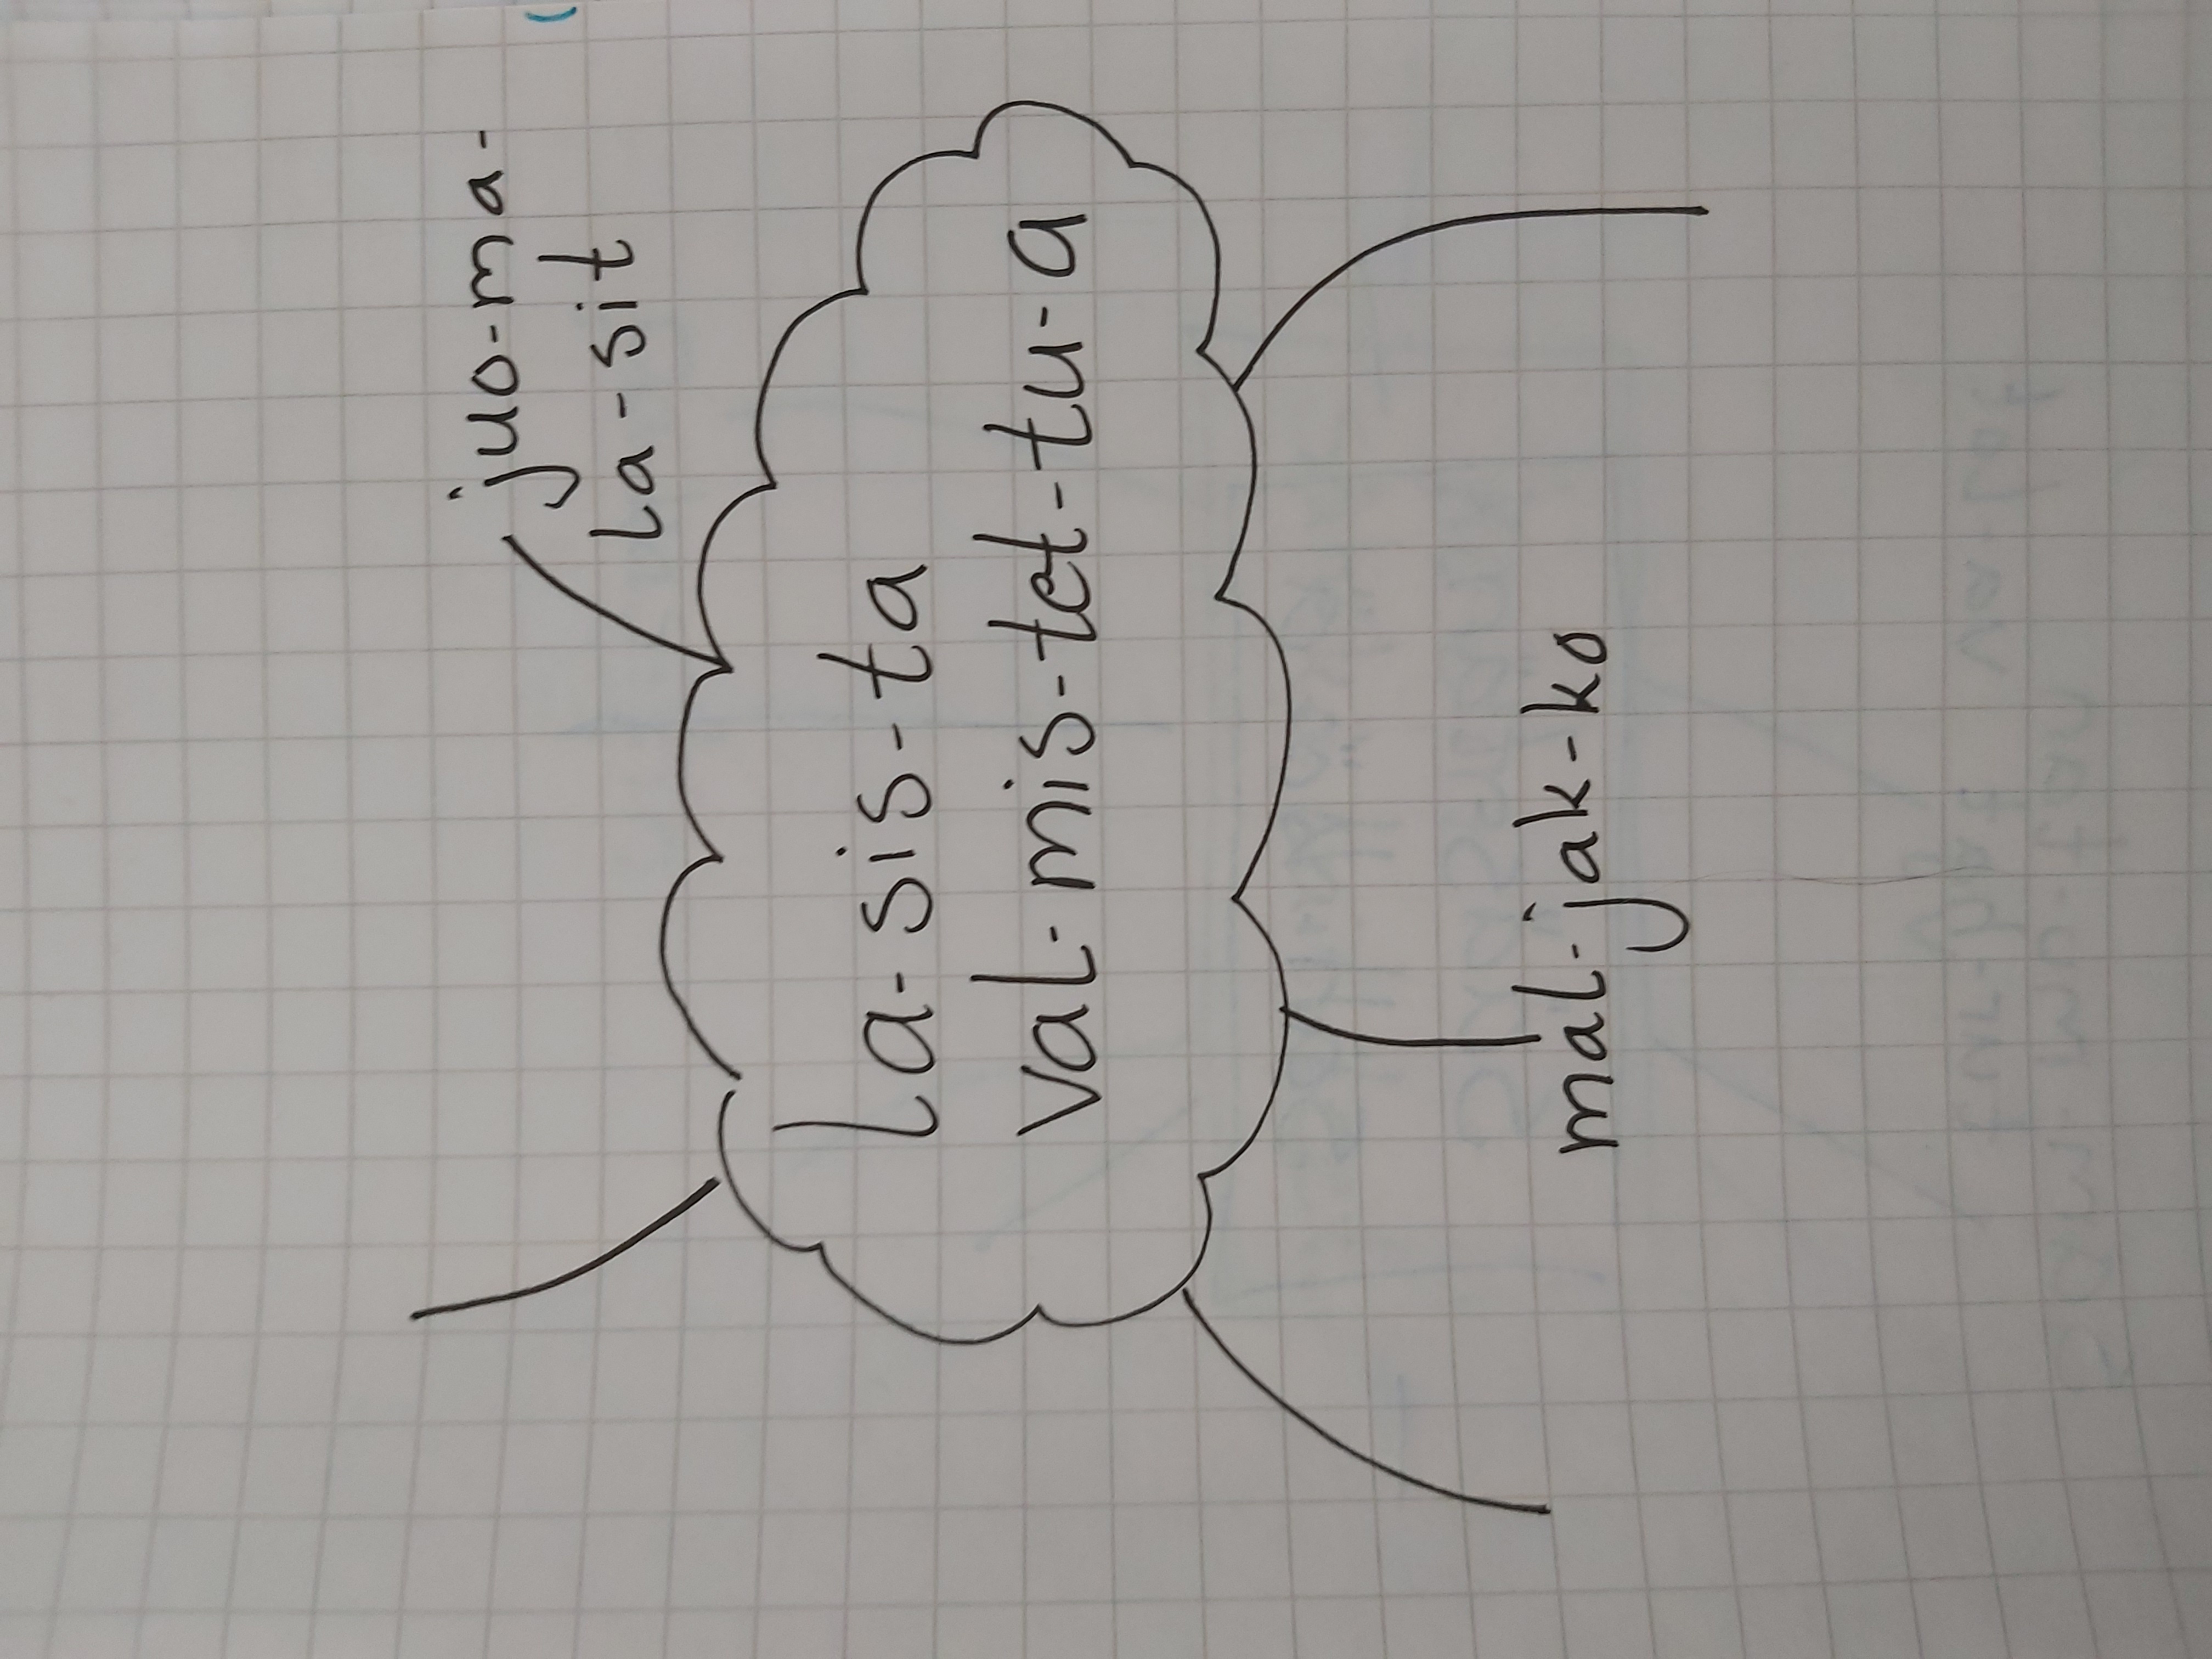 juo-ma-
la-sit
la-sis-ta
val-mis-tet-tu-a
mal-jak-ko